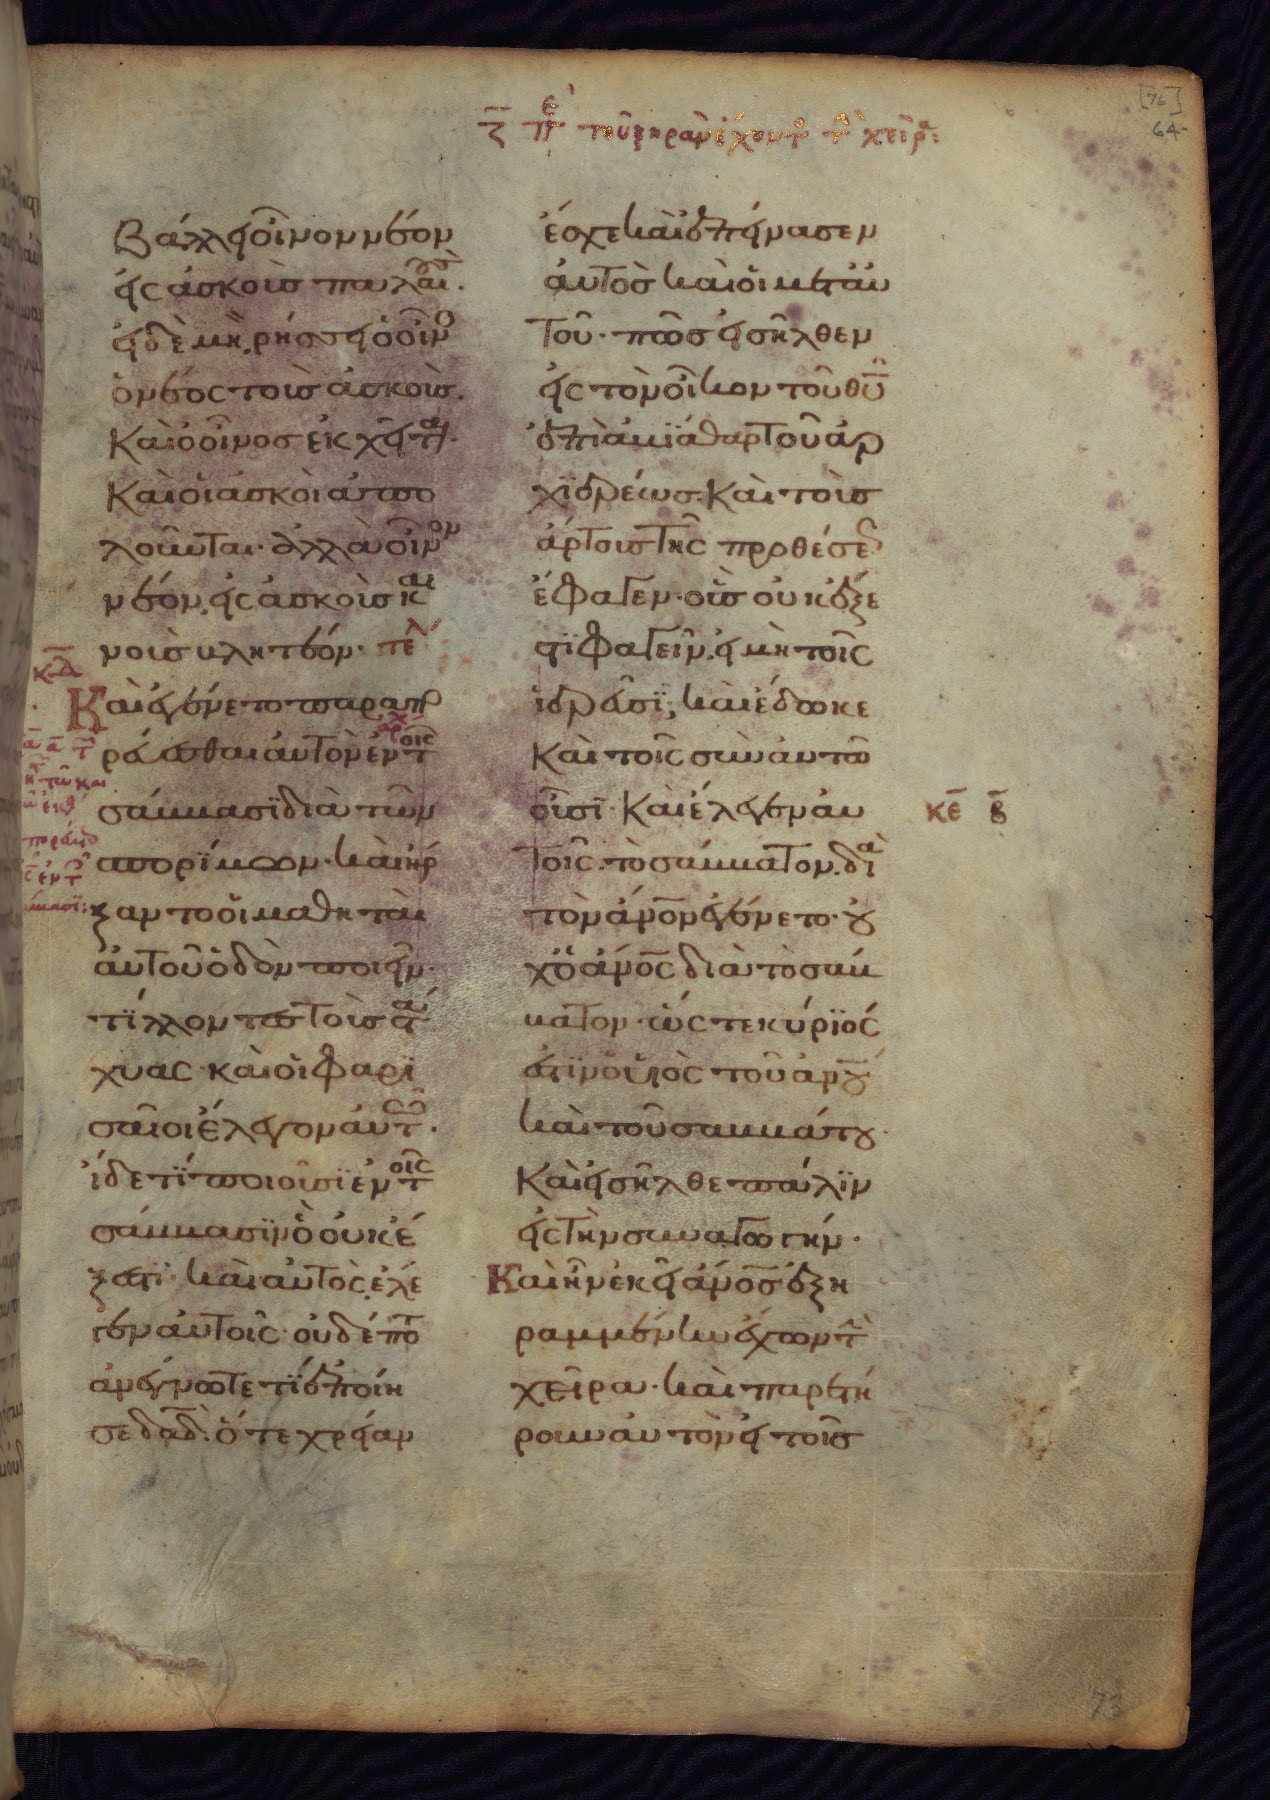 ζ περὶ τοῦ ξηρὰν ἔχοντος τὴν χεῖρα:
[76]
64
βάλλει οἶνον νέον
εἰς ἀσκοὺς παλαιούς.
εἰ δὲ μὴ, ῥήσσει ὁ οἶνος
ὁ νέος τοὺς ἀσκούς.
καὶ ὁ οἶνος ἐκχεῖται.
καὶ οἱ ἀσκοὶ ἀπο
λοῦνται. ἀλλὰ οἶνον
νέον, εἰς ἀσκοὺς και
νοὺς βλητέον. τέλ
κδ
Καὶ ἐγένετο παραπο
ρεύεσθαι αὐτὸν ἐν τοῖς
σάββασϊ διὰ τῶν
σπορίμων. καὶ ἤρ
ξαντο οἱ μαθηταὶ
αὐτοῦ ὁδὸν ποιεῖν.
τίλλοντες τοὺς στά
χυας. καὶ οἱ φαρϊ
σαῖοι ἔλεγον αὐτῶ.
ἴδε τί ποιοῦσϊ ἐν τοῖς
σάββασϊν ὃ οὐκ ἔ
ξεστϊ. καὶ αὐτὸς ἔλε
γεν αὐτοῖς. οὐδέποτε
ἀνέγνωτε τί ἐποίη
σε δαδ. ὅτε χρείαν
ἔσχε καὶ ἐπείνασεν
αὐτὸς καὶ οἱ μετ' αὐ
τοῦ. πῶς εἰσῆλθεν
εἰς τὸν οἶκον τοῦ θυ
ἐπὶ ἀβϊάθαρ τοῦ ἀρ
χϊερέως. καὶ τοὺς
ἄρτους τῆς προθέσεως
ἔφαγεν. οὓς οὐκ ἔξε
στϊ φαγεῖν, εἰ μὴ τοῖς
ἱερεῦσϊ, καὶ ἔδωκε
καὶ τοῖς σὺν αὐτῶ
οὖσϊ. καὶ ἔλεγεν αὐ
τοῖς. τὸ σάββατον. διὰ
κε β
τὸν ἄνον ἐγένετο. οὐ
χ' ὁ ἄνος διὰ τὸ σάβ
βατον. ὥς τε κύρϊός
ἐστϊν ὁ υἱὸς τοῦ ἀνου
καὶ τοῦ σαββάτου.
Καὶ εἰσῆλθε πάλϊν
εἰς τὴν συναγωγήν.
Καὶ ἦν ἐκεῖ ἄνος ἐξη
ραμμένην ἔχων τὴν
χεῖρα. καὶ παρετή
ρουν αὐτὸν εἰ τοῖς
73